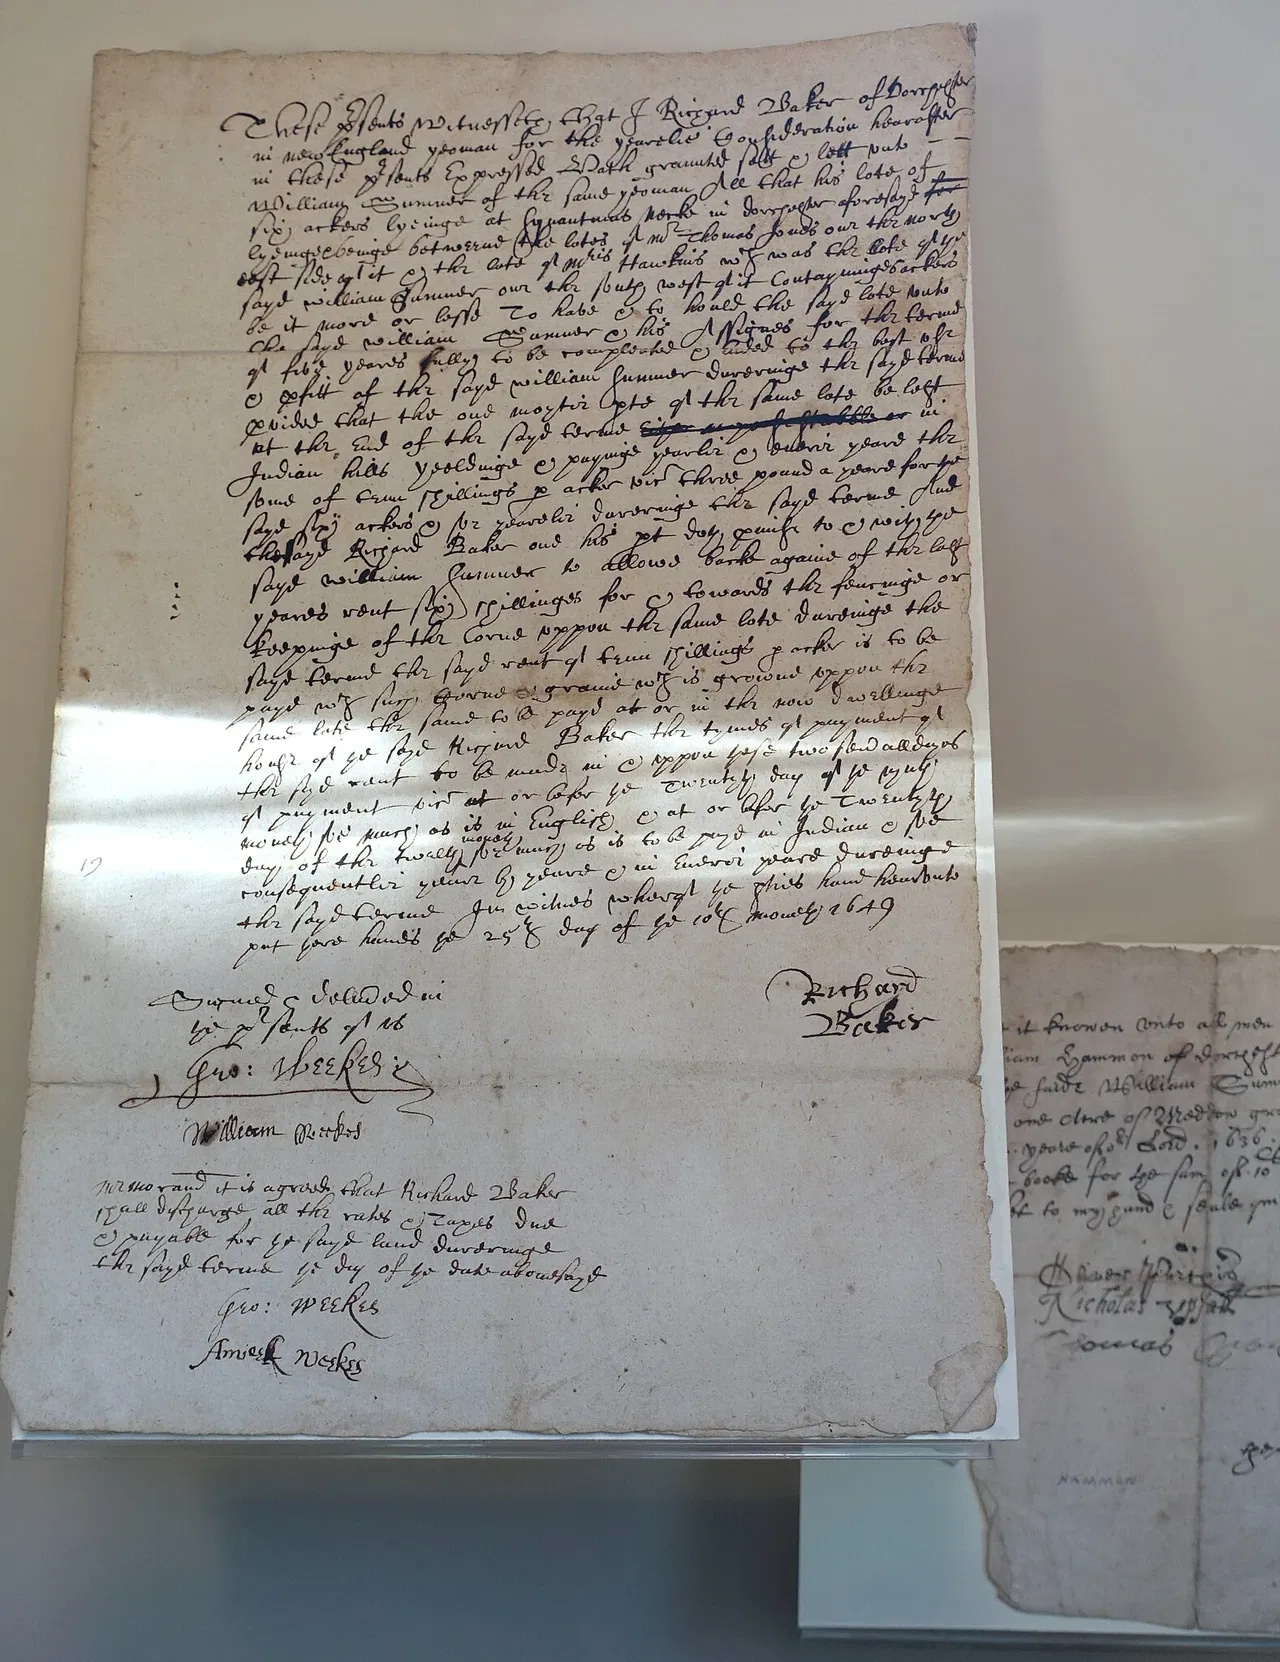 These psents Witnesseth that I Richard Baker of Dorchester
in new England yeoman for the yearelie Consideration hearafter
in these psents Expressed Hath graunted sett & lett unto
William Sumner of the same yeoman All that his lote of
six ackers lyeinge at Squantums Necke in dorchester aforesayd for
lyeinge beinge betweene the lotes of mr Thomas Jones one the north
east side of it & the lote of mris Hawkins wch was the lote of ye
sayd william Sumner one the south west of it Contayninge ackers
be it more or lesse To have & to hould the sayd lote unto
the sayd william Sumner & his Assignes for the terme
of five yeares fully to be compleated & Ended to the best use
& pfitt of the sayd william Sumner dureinge the sayd terme
pvided that the one moytie pte of the same lote be left
at the End of the sayd terme in
Indian hills yeeldinge & payinge yearlie & everie yeare the
some of tenn shillings p acker vict three pound a yeare for the
sayd six ackers & soe yearelie dureinge the sayd terme And
the sayd Richard Baker one his pt doth pmise to & with the
sayd william Sumner to allowe backe againe of the last
yeares rent six shillinges for & towards the fencinge or
keepinge of the Corne uppon the same lote dureinge the
sayd terme the sayd rent of tenn shillings p acker is to be
payd wth such Corne & graine wch is growne uppon the
same lote the same to be payd at or in the now dwellinge
house of ye sayd Richard Baker the tymes of payment of
the sayd rent to be made in & uppon these two severall dayes
of payment vict at or before ye Twentyth day of ye nynth
moneth soe much as is in English & at or before ye Twentyth
day of the twelth moneth soe much as is to be payd in Indian & soe
consequentlie yeare by yeare & in Everie yeare dureinge
the sayd terme In witnes wherof ye pties have hearunto
put there hands ye 25th day of ye 10th moneth 1649
Signed & delivered in
ye presents of us
Richard
Baker
Geo: WEEKES
William Weekes
memorand it is agreed that Richard Baker
shall discharge all the rates & Taxes due
& payable for ye sayd land dureinge
the sayd terme ye day of ye date abovesayd
Geo: WEEKES
Amiell Weekes
it knowen unto all men
Hammon of dorchest
ye saide William Sum
one Acre of Meddow
yeare of or Lord . 1636
booke for the sum of 10
to my hand & seale
Nicholas Upsall
Thomas
HAMMON